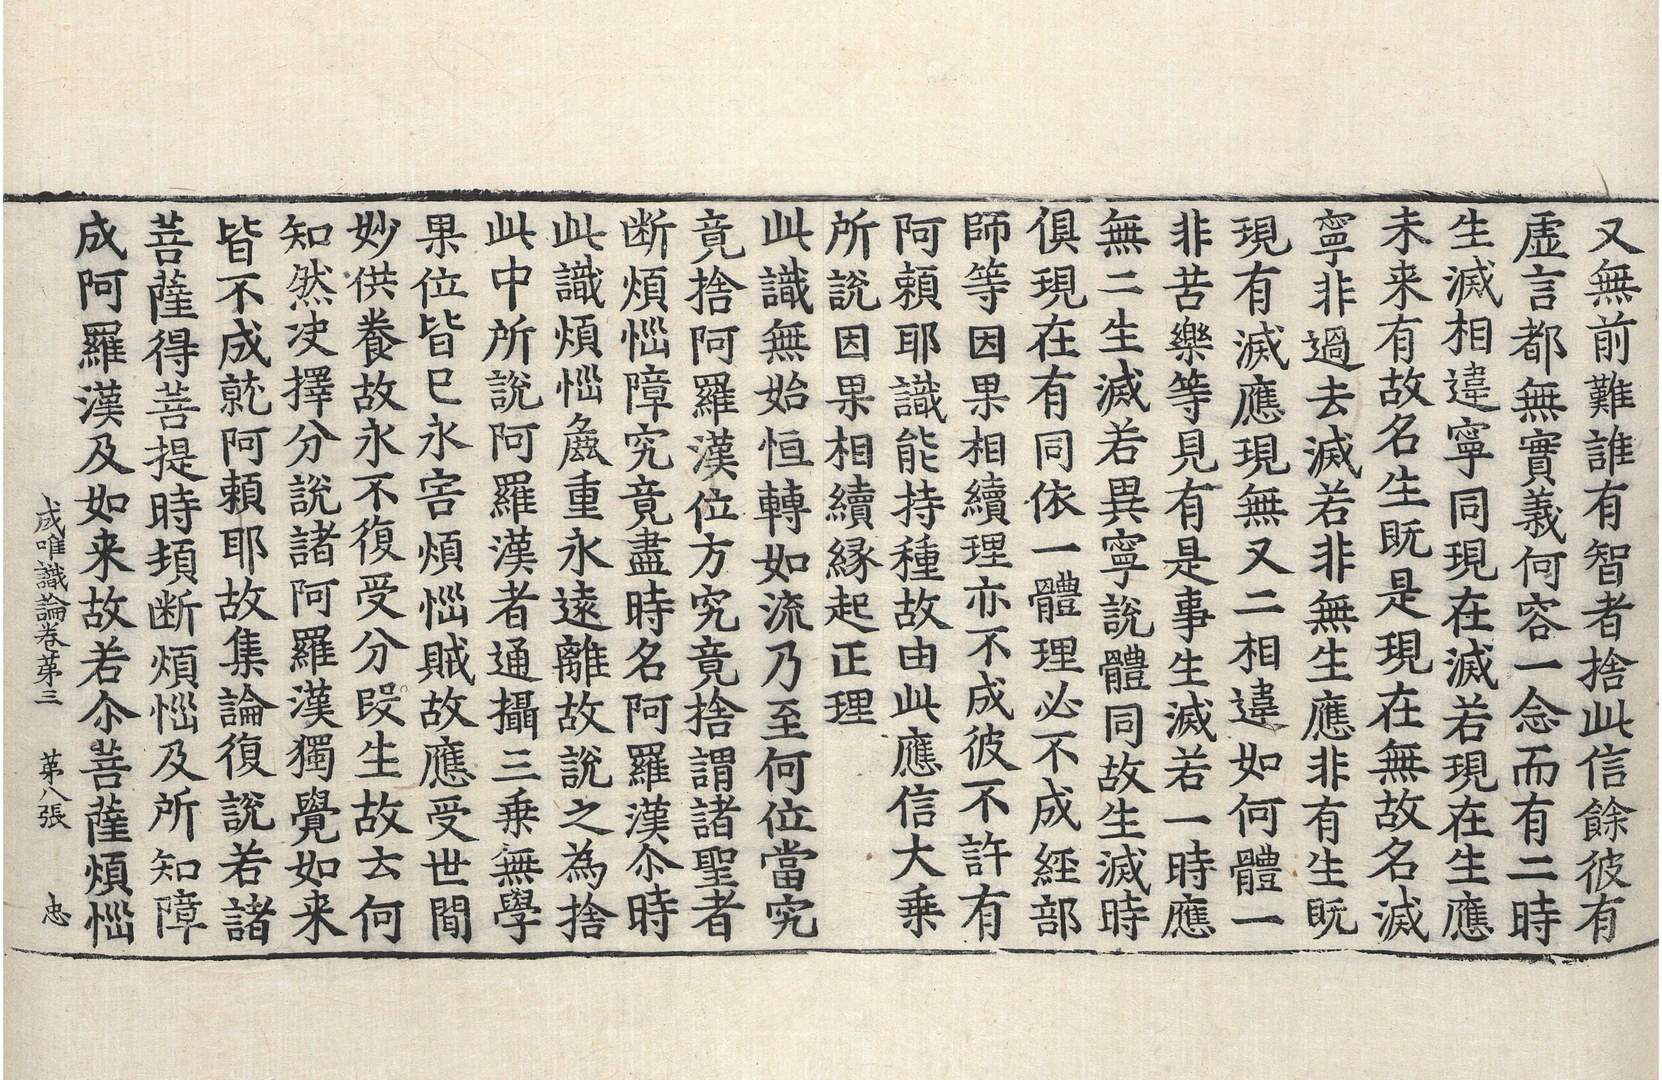 又無前難誰有智者捨此信餘彼有
虛言都無實義何容一念而有二時
生滅相違寧同現在滅若現在生應
未来有故名生既是現在無故名滅
寧非過去滅若非無生應非有生既
現有滅應現無又二相違如何體一
非苦樂等見有是事生滅若一時應
無二生滅若異寧說體同故生滅時
俱現在有同依一體理必不成經部
師等因果相續理亦不成彼不許有
阿頼耶識能持種故由此應信大乗
所說因果相續縁起正理
此識無始恒轉如流乃至何位當究
竟捨阿羅漢位方究竟捨謂諸聖者
断煩惱障究竟盡時名阿羅漢尒時
此識煩惱麁重永遠離故說之為捨
此中所說阿羅漢者通攝三乗無學
果位皆已永害煩惱賊故應受世間
妙供養故永不復受分段生故云何
知然决擇分說諸阿羅漢獨覺如来
皆不成就阿頼耶故集論復說若諸
菩薩得菩提時頓断煩惱及所知障
成阿羅漢及如来故若尒菩薩煩惱
成唯識論卷第三 第八張 忠